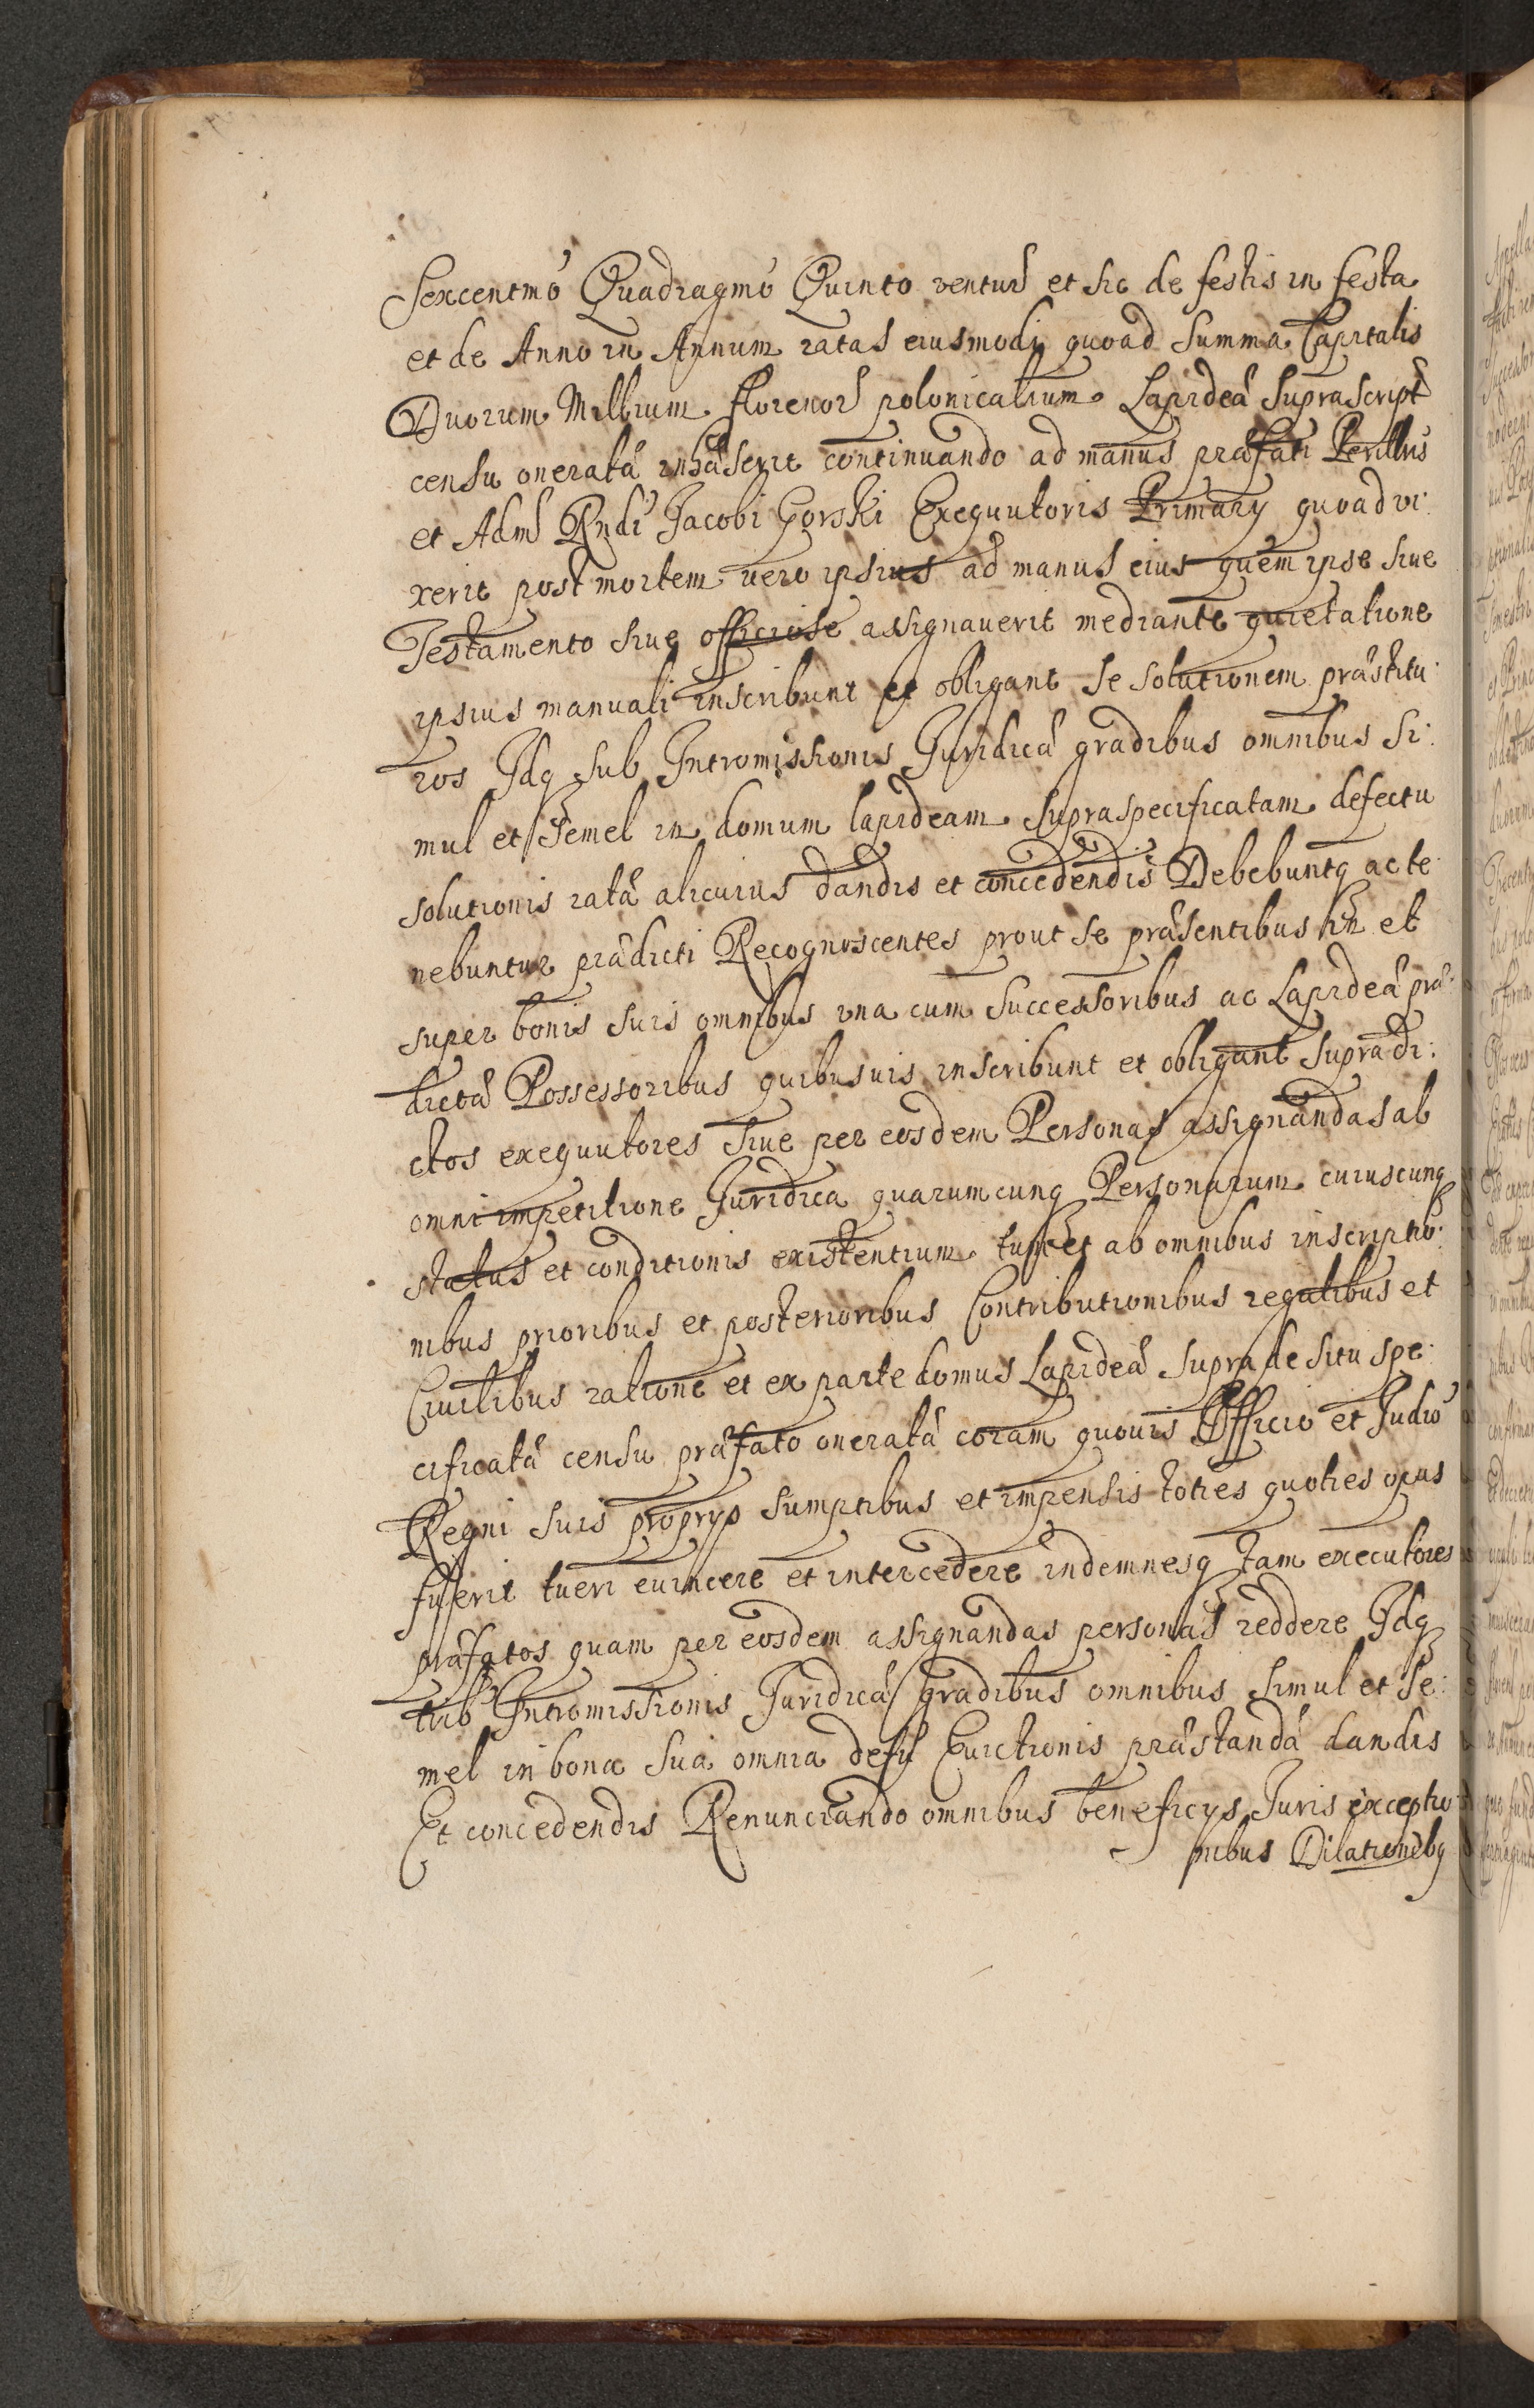 Sexcentmo Quadragmo Quinto ventur et sic de festis in festa
et de Anno in Annum ratas eiusmodi quoad Summa Capitalis
Duorum Millium florenor polonicalium Lapideæ Suprascript
censu oneratæ inhæserit continuando ad manus præfati Perillris
et Adm Rndi Jacobi Gorski Exequutoris Primarÿ quoad vi:
xerit post mortem vero ipsius ad manus eius quem ipse siue
Testamento siue officiose assignauerit mediante quietatione
ipsius manuali inscribunt et obligant se solutionem præstitu:
ros Idq sub Intromissionis Juridicæ gradibus omnibus si:
mul et semel in domum lapideam supraspecificatam defectu
solutionis ratæ alicuius dandis et concedendis Debebuntq ac te:
nebuntur prædicti Recognoscentes prout se præsentibus hn et
super bonis suis omnibus vna cum Successoribus ac Lapideæ præ:
dictæ Possessoribus quibusuis inscribunt et obligant supradi:
ctos exequutores siue per eosdem Personas assignandas ab
omni impetitione Juridica quarumcunq Personarum cuiuscunq
status et conditionis existentium tum et ab omnibus inscriptio:
nibus prioribus et posterioribus Contributionibus regalibus et
Ciuilibus ratione et ex parte domus Lapideæ supra de situ spe:
cificatæ censu præfato oneratæ coram quouis Officio et Judio
Regni suis proprÿs sumptibus et impensis toties quoties opus
fuerit tueri euincere et intercedere indemnesq tam executores
præfatos quam per eosdem assignandas personas reddere Idq
sub Intromissionis Juridicæ gradibus omnibus simul et se:
mel in bona sua omnia defu Euictionis præstandæ dandis
Et concedendis Renunciando omnibus beneficÿs Juris exceptio:
nibus Dilationibq